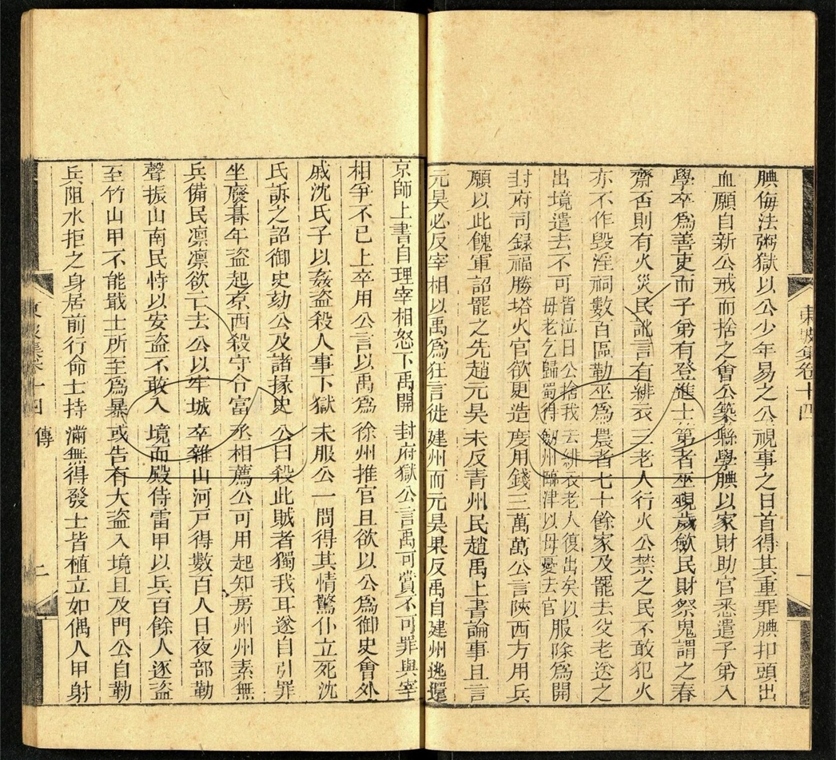 東坡集卷十四 一
腆侮法粥獄以公少年易之公視事之日首得其重罪腆扣頭出
血願自新公戒而捨之會公築縣學腆以家財助官悉遣子弟入
學卒爲善吏而子弟有登進士第者巫覡歲斂民財祭鬼謂之春
齋否則有火災民訛言有緋衣三老人行火公禁之民不敢犯火
亦不作毀淫祠數百區勒巫爲農者七十餘家及罷去父老送之
出境遣去不可皆泣曰公捨我去緋衣老人復出矣以母老乞歸蜀得劍州臨津以母憂去官服除爲開
封府司錄福勝塔火官欲更造度用錢三萬萬公言陝西方用兵
願以此餽軍詔罷之先趙元昊未反青州民趙禹上書論事且言
元昊必反宰相以禹爲狂言徙建州而元昊果反禹自建州逃還
京師上書自理宰相怒下禹開封府獄公言禹可賞不可罪與宰
相爭不已上卒用公言以禹爲徐州推官且欲以公爲御史會外
戚沈氏子以姦盜殺人事下獄未服公一問得其情驚仆立死沈
氏訴之詔御史劾公及諸掾史公曰殺此賊者獨我耳遂自引罪
坐廢朞年盜起京西殺守令富丞相薦公可用起知房州州素無
兵備民凛凛欲亡去公以牢城卒雜山河戶得數百人日夜部勒
聲振山南民恃以安盜不敢入境而殿侍雷甲以兵百餘人逐盜
至竹山甲不能戢士所至爲暴或告有大盜入境且及門公自勒
兵阻水拒之身居前行命士持滿無得發士皆植立如偶人甲射
東坡集卷十四 傳 二